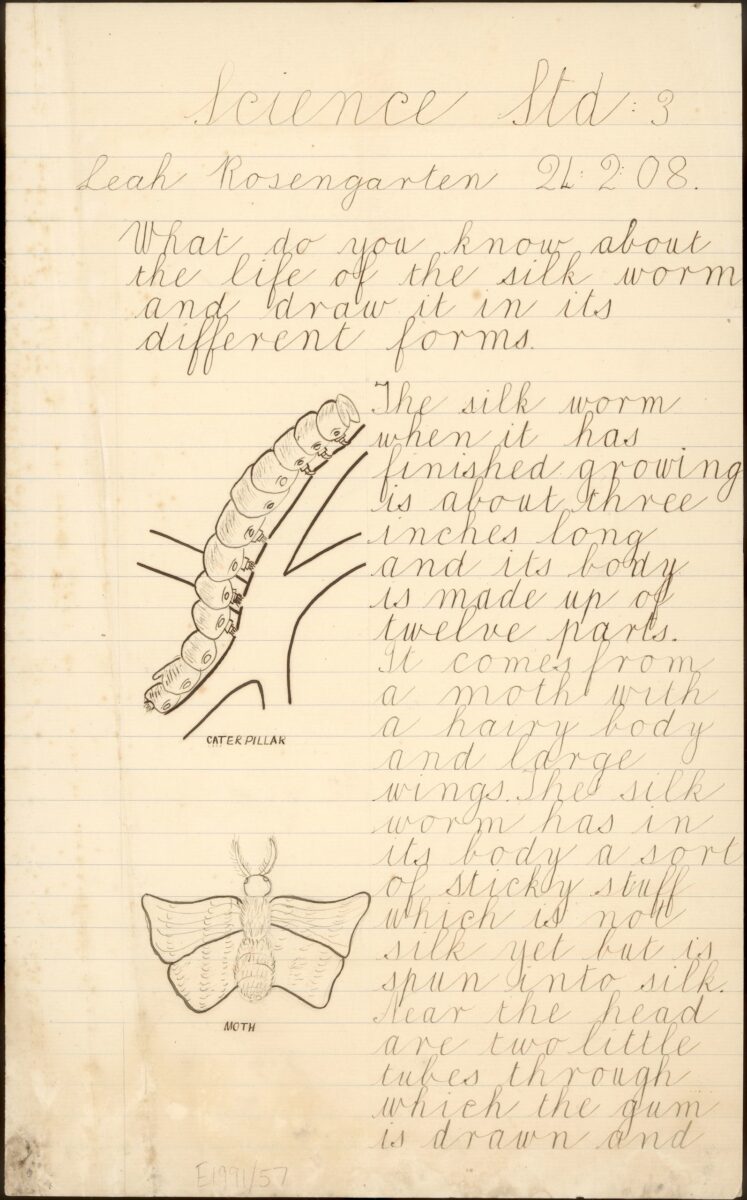 Science Std: 3
Leah Rosengarten 24: 2: 08.
What do you know about
the life of the silk worm
and draw it in its
different forms.
The silk worm
when it has
finished growing
is about three
inches long
and its body
is made up of
twelve parts.
It comes from
a moth with
a hairy body
and large
wings. The silk
worm has in
its body a sort
of sticky stuff
which is not
silk yet but is
spun into silk.
Near the head
are two little
tubes through
which the gum
is drawn and
CATERPILLAR
MOTH
E1991/57